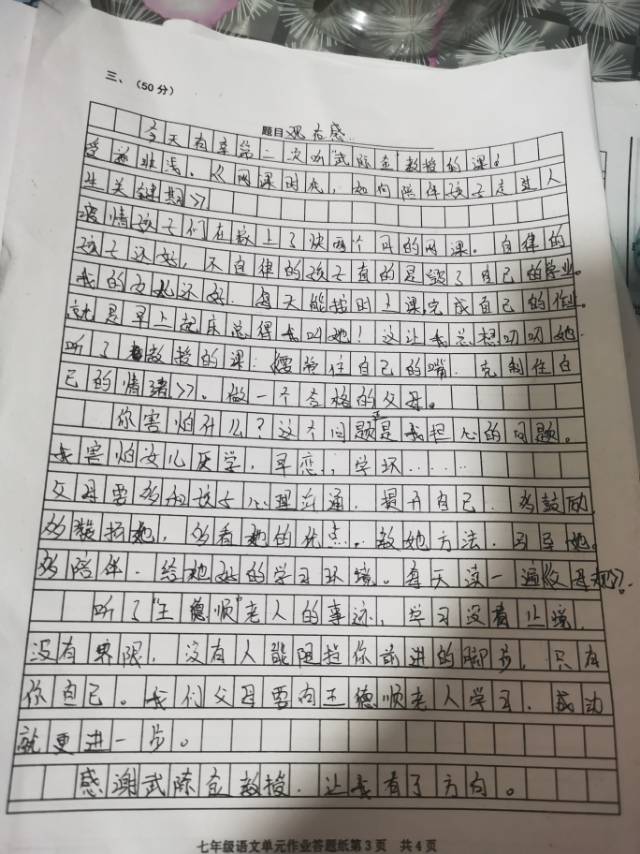 三、（50分）
题目 观后感
今天有幸第二次听武际金教授的课。
受益非浅。《网课时代，如何陪伴孩子度过人
生关键期》
疫情孩子们在教上了快两个月的网课。自律的
孩子还好，不自律的孩子真的是毁了自己的学业。
我的女儿还好．每天能按时上课完成自己的作业。
就是早上起床总得我叫她！这让我总想叨叨她．
听了教授的课：《管住自己的嘴．克制住自
己的情绪》。做一个合格的父母。
你害怕什么？这个问题正是我担心的问题。
我害怕女儿厌学．早恋，学坏……
父母要多和孩子心理沟通．提升自己．多鼓励，
多赞扬她，多看她的优点。教她方法．引导她。
多陪伴．给她好的学习环境。每天读一遍《父母规》?.
听了"王德顺"老人的事迹，学习没有止境，
没有界限．没有人能阻挡你前进的脚步，只有
你自己。我们父母要向王德顺老人学习．成功
就更进一步。
感谢武陈金教授．让我有了方向。
七年级语文单元作业答题纸第3页 共4页